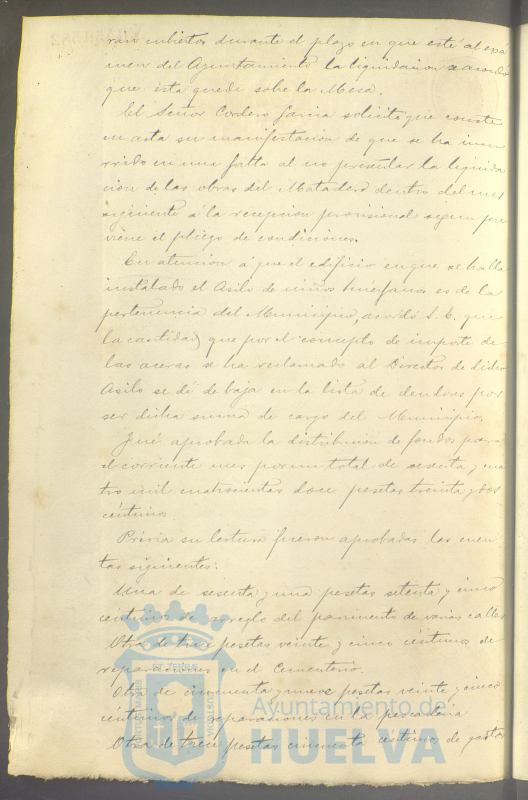 rán cubiertos durante el plazo en que esté al exá
men del Ayuntamiento la liquidacion se acordó
que ésta quede sobre la Mesa.
El Señor Cordero Garcia solicita que conste
en acta su manifestacion de que se ha incu
rrido en una falta al no presentar la liquida
cion de las obras del Matadero dentro del mes
siguiente á la recepcion provisional segun pre
viene el pliego de condiciones.
En atencion á que el edificio en que se halla
instalado el Asilo de niños huerfanos es de la
pertenencia del Municipio, acordó S. E. que
la cantidad que por el concepto de importe de
las aceras se ha reclamado al Director de dicho
Asilo se dé de baja en la lista de deudores por
ser dicha suma de cargo del Municipio.
Fué aprobada la distribucion de fondos para
el corriente mes por un total de sesenta y cua
tro mil cuatrocientas doce pesetas treinta y dos
céntimos.
Prévia su lectura fueron aprobadas las cuen
tas siguientes:
Una de sesenta y una pesetas setenta y cinco
céntimos de arreglo del pavimento de varias calles
Otra de trece pesetas veinte y cinco céntimos de
reparaciones en el Cementerio.
Otra de cincuenta y nueve pesetas veinte y cinco
céntimos de reparaciones en la pescaderia
Otra de trece pesetas cincuenta céntimos de gastos
Ayuntamiento de
HUELVA